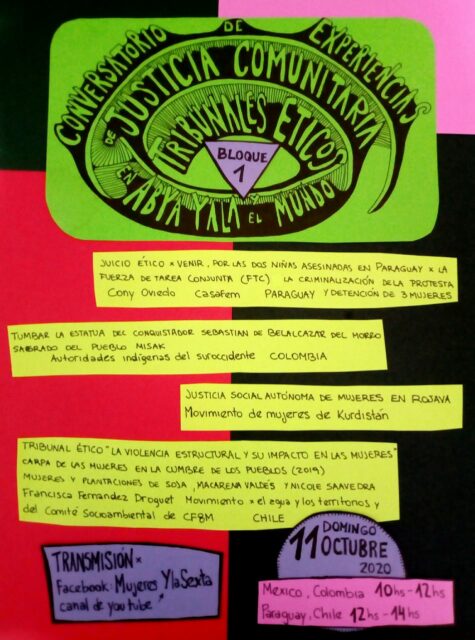 CONVERSATORIO DE EXPERIENCIAS
DE JUSTICIA COMUNITARIA
TRIBUNALES ETICOS
BLOQUE
1
EN ABYA YALA Y EL MUNDO
JUICIO ÉTICO × VENIR, POR LAS DOS NIÑAS ASESINADAS EN PARAGUAY × LA
FUERZA DE TAREA CONJUNTA (FTC) LA CRIMINALIZACIÓN DE LA PROTESTA
Cony Oviedo Casafem PARAGUAY Y DETENCIÓN DE 3 MUJERES
TUMBAR LA ESTATUA DEL CONQUISTADOR SEBASTIAN DE BELALCAZAR DEL MORRO
SAGRADO DEL PUEBLO MISAK
Autoridades indígenas del suroccidente COLOMBIA
JUSTICIA SOCIAL AUTÓNOMA DE MUJERES EN ROJAVA
Movimiento de mujeres de Kurdistán
TRIBUNAL ÉTICO "LA VIOLENCIA ESTRUCTURAL Y SU IMPACTO EN LAS MUJERES"
CARPA DE LAS MUJERES EN LA CUMBRE DE LOS PUEBLOS (2019)
MUJERES Y PLANTACIONES DE SOJA, MACARENA VALDÉS Y NICOLE SAAVEDRA
Francisca Fernandez Droguet Movimiento × el agua y los territorios y
del Comité Socioambiental de CF8M CHILE
TRANSMISIÓN×
Facebook: Mujeres YlaSexta
canal de youtube"
DOMINGO
11 OCTUBRE
2020
Mexico, Colombia 10hs-12hs
Paraguay, Chile 12hs-14hs